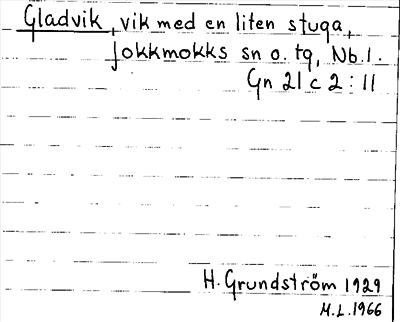 Gladvik, vik med en liten stuga,
Jokkmokks sn o. tg, Nb.l.
Gn 21 c 2:11
H. Grundström 1929
M.L. 1966